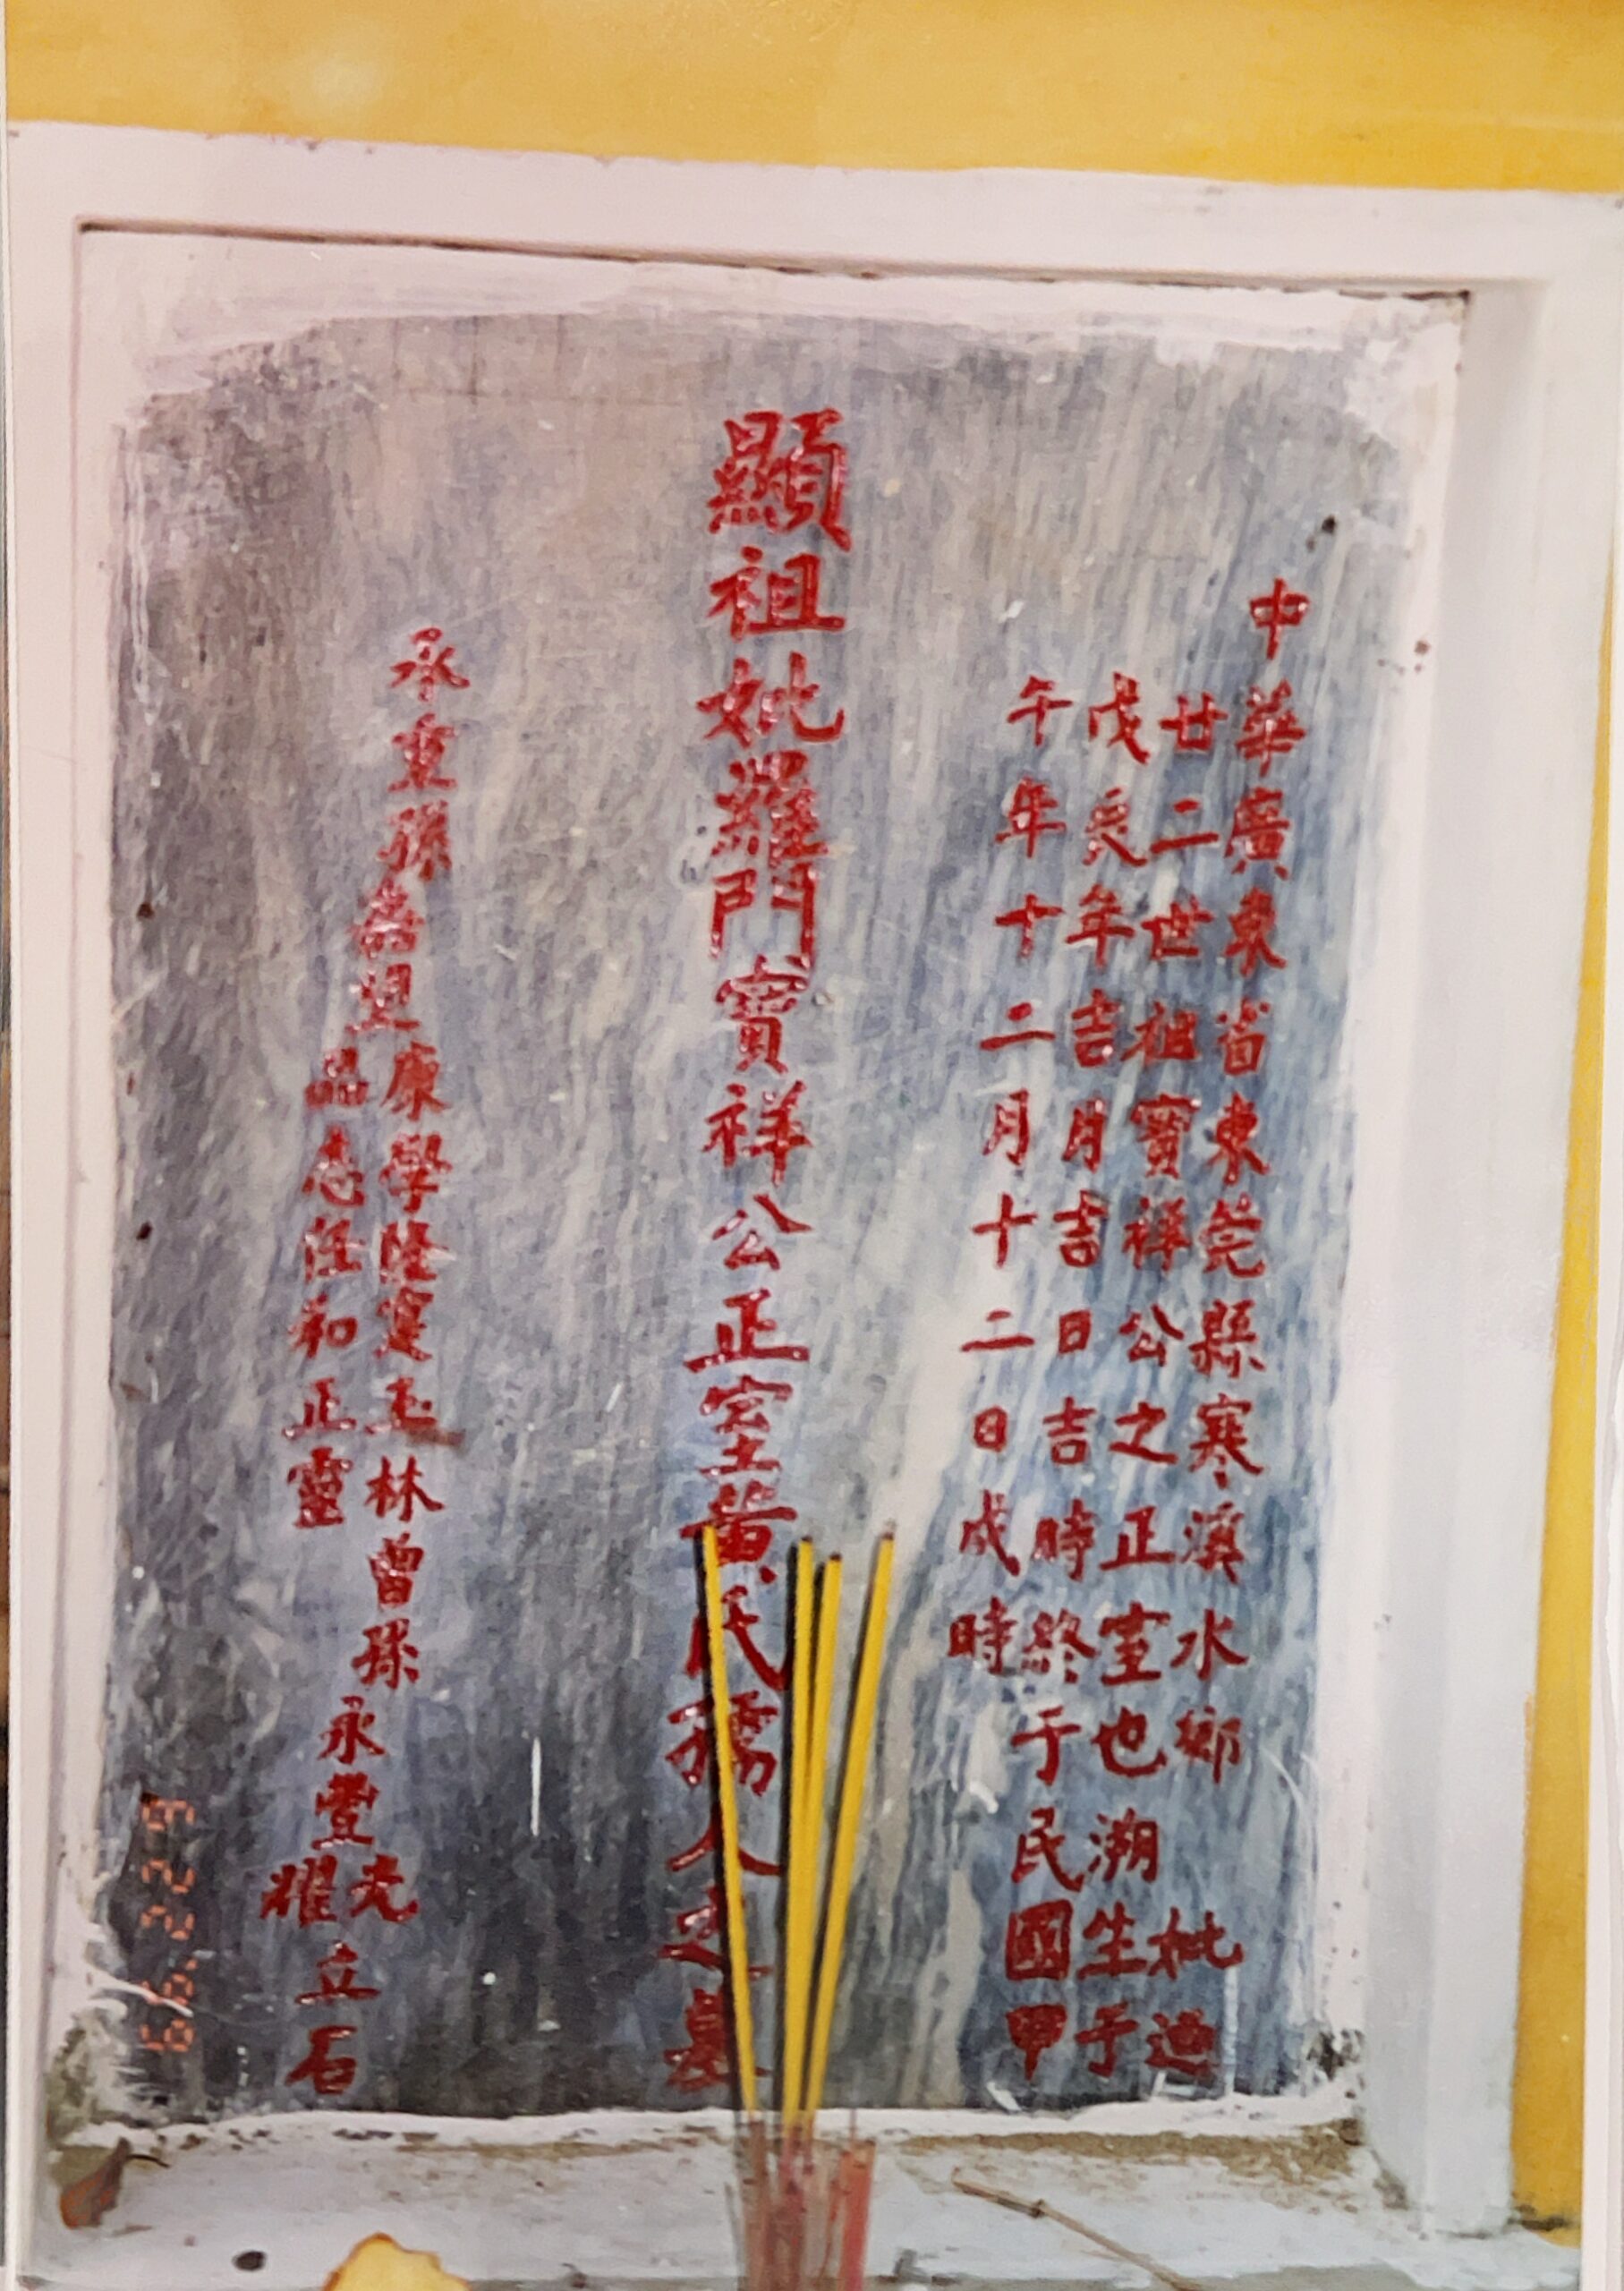 中華廣東省東莞縣寒溪水鄉 妣迪
廿二世祖寶祥公之正室也溯生于
戊辰年吉月吉日吉時終于民國甲
午年十二月十二日戌時
顯祖妣羅門寶祥公正室黃氏孺人之墓
承重孫
康學隆 玉林曾孫
品志任和正靈
永豐
光
耀
立石
99.2.29